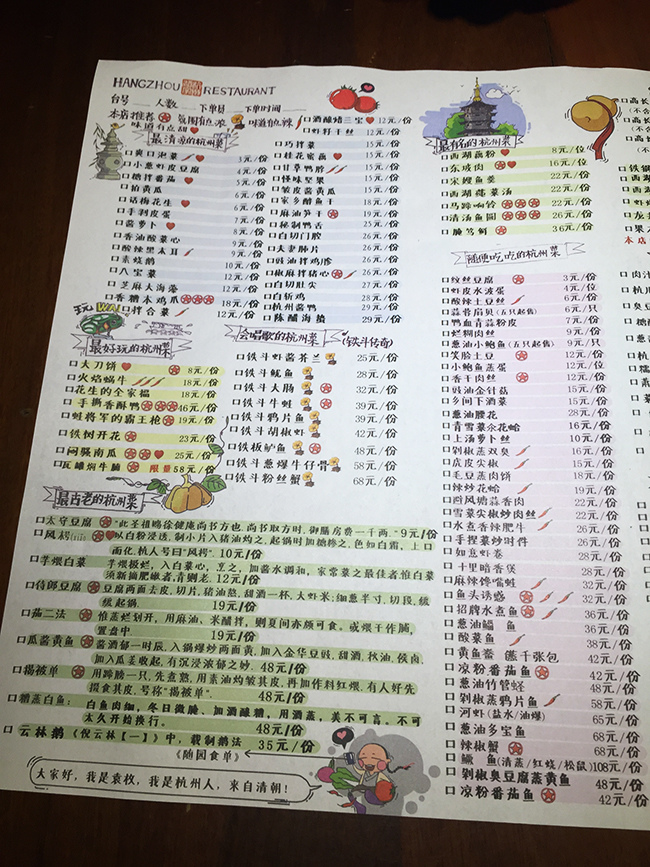 HANGZHOU RESTAURANT
台号 人数 下单员 下单时间
本店推荐 氛围有点浓 味道有点辣
味道有点甜
最清凉的杭州菜
爽口泡菜 3元/份
小葱虾皮豆腐 4元/份
糖拌番茄 5元/份
拍黄瓜 6元/份
话梅花生 6元/份
手剥皮蛋 7元/份
酱萝卜 8元/份
香油酸菜心 9元/份
酸辣黑木耳 9元/份
素烧鹅 10元/份
八宝菜 12元/份
芝麻大海藻 12元/份
香糟木鸡瓜 18元/份
拌合菜 12元/份
酒酿醋三宝 12元/份
虾籽干丝 12元/份
巧拌菜 15元/份
桂花蜜藕 15元/份
甘草鸭胗 15元/份
怪味坚果 15元/份
皱皮酱黄瓜 15元/份
家乡醋鱼干 18元/份
麻油笋干 19元/份
秘制鸭舌 25元/份
白切门腔 26元/份
夫妻肺片 26元/份
豉油拌鸡胗 26元/份
椒麻拌猪心 26元/份
白切肚尖 27元/份
白斩鸡 28元/份
杭州酱鸭 29元/份
陈醋海蜇 29元/份
玩WA!
最好玩的杭州菜
大刀饼 8元/份
火焰蜗牛 18元/份
花生的全家褔 18元/份
手撕香酥鸭 46元/份
蛙将军的霸王枪 19元/份
铁树开花 23元/份
闷骚南瓜 25元/份
瓦罐焖牛腩 限量 58元/份
会唱歌的杭州菜 (铁斗传奇)
铁斗虾酱芥兰 25元/份
铁斗鱿鱼 28元/份
铁斗大肠 32元/份
铁斗牛蛙 39元/份
铁斗鸦片鱼 39元/份
铁斗胡椒虾 42元/份
铁板鲈鱼 48元/份
铁斗葱爆牛仔骨 58元/份
铁斗粉丝蟹 68元/份
最古老的杭州菜
太守豆腐 "此圣祖赐徐健庵尚书方也.尚书取方时,御膳房费一千两."9元/份
风枵 以白粉浸透,制小片入猪油灼之,起锅时加糖糁之,色如白霜,上口而化,杭人号曰"风枵". 10元/份
芋煨白菜 芋煨极烂,入白菜心,烹之,加酱水调和,家常菜之最佳者,惟白菜须新摘肥嫩者,青则老. 12元/份
侍郎豆腐 豆腐两面去皮,切片,猪油熬,甜酒一杯,大虾米;细葱半寸,切段,缓缓起锅. 19元/份
茄二法 惟蒸烂划开,用麻油、米醋拌,则夏间亦颇可食.或煨干作脯,置盘中 19元/份
瓜酱黄鱼 酱酒郁一时辰,入锅爆炒两面黄,加入金华豆豉,甜酒,秋油,候卤,加入瓜姜收起,有沉浸浓郁之妙. 48元/份
揭被单 用蹄膀一只,先煮熟,用素油灼皱其皮,再加作料红煨.有人好先掇食其皮,号称"揭被单". 48元/份
糟蒸白鱼: 白鱼肉细,冬日微腌、加酒酿糟,用酒蒸,美不可言,不可太久开始换行. 48元/份
云林鹅《倪云林【一】》中,载制鹅法 35元/份
《随园食单》
大家好,我是袁枚,我是杭州人,来自清朝!
最有名的杭州菜
西湖藕粉 8元/位
东坡肉 16元/位
宋嫂鱼羹 22元/份
西湖莼菜汤 22元/份
马蹄响铃 22元/份
清汤鱼圆 26元/份
腌笃鲜 36元/份
随便吃吃的杭州菜
纹丝豆腐 3元/位
虾皮水波蛋 4元/位
酸辣土豆丝 6元/份
蒜蓉扇贝(五只起售) 6元/只
鸭血青蒜粉皮 7元/份
烂糊肉丝 9元/份
葱油小鲍鱼(五只起售) 9元/只
笑脸土豆 12元/份
小鲍鱼蒸蛋 12元/位
香干肉丝 12元/份
豉油金针菇 15元/份
乡间下酒菜 15元/份
葱油腰花 28元/份
青雪菜汆花蛤 16元/份
上汤萝卜丝 10元/份
剁椒蒸双臭 16元/份
虎皮尖椒 15元/份
毛豆蒸肉饼 18元/份
辣炒花蛤 19元/份
避风塘蒜香肉 22元/份
雪菜尖椒炒肉丝 22元/份
水煮香辣肥牛 26元/份
手捏菜炒时件 26元/份
如意虾卷 28元/份
十里暗香煲 28元/份
麻辣馋嘴蛙 32元/份
鱼头诱惑 32元/份
招牌水煮鱼 36元/份
葱油鳊鱼 36元/份
酸菜鱼 38元/份
黄鱼鲞㸆千张包 32元/份
凉粉番茄鱼 42元/份
葱油竹管蛏 48元/份
剁椒蒸鸦片鱼 58元/份
河虾(盐水/油爆) 65元/份
葱油多宝鱼 68元/份
辣椒蟹 68元/份
鳜鱼(清蒸/红烧/松鼠)108元/份
剁椒臭豆腐蒸黄鱼 68元/份
凉粉番茄鱼 42元/份